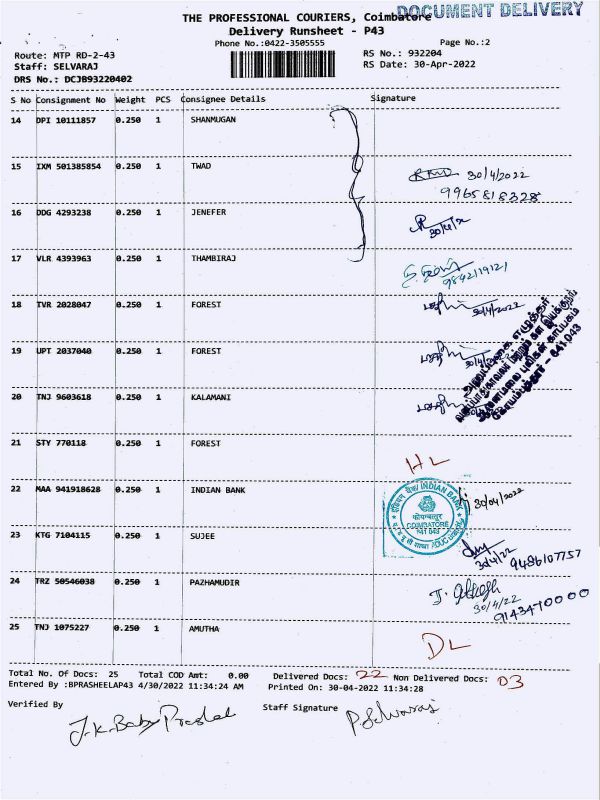 THE PROFESSIONAL COURIERS, Coimbatore
DOCUMENT DELIVERY
Delivery Runsheet - P43
Phone No.:0422-3505555
Page No.:2
Route: MTP RD-2-43
RS No.: 932204
Staff: SELVARAJ
RS Date: 30-Apr-2022
DRS No.: DCJB93220402
S No Consignment No Weight PCS Consignee Details Signature
14 DPI 10111857 0.250 1 SHANMUGAN
15 IXM 501385854 0.250 1 TWAD
30/4/2022
9965818328
16 DDG 4293238 0.250 1 JENEFER
17 VLR 4393963 0.250 1 THAMBIRAJ
9842119121
18 TVR 2028047 0.250 1 FOREST
30/4/2022
19 UPT 2037040 0.250 1 FOREST
20 TNJ 9603618 0.250 1 KALAMANI
கோயம்புத்தூர் - 641 043
21 STY 770118 0.250 1 FOREST
HL
22 MAA 941918628 0.250 1 INDIAN BANK
30/04/2022
INDIAN BANK
कोयम्बत्तूर
COIMBATORE
641 043
23 KTG 7104115 0.250 1 SUJEE
30/4/22
9486107757
24 TRZ 50546038 0.250 1 PAZHAMUDIR
30/4/22
9143470000
25 TNJ 1075227 0.250 1 AMUTHA
DL
Total No. Of Docs: 25 Total COD Amt: 0.00 Delivered Docs: 22 Non Delivered Docs: 03
Entered By :BPRASHEELAP43 4/30/2022 11:34:24 AM Printed On: 30-04-2022 11:34:28
Verified By
Staff Signature
P. Selvaraj